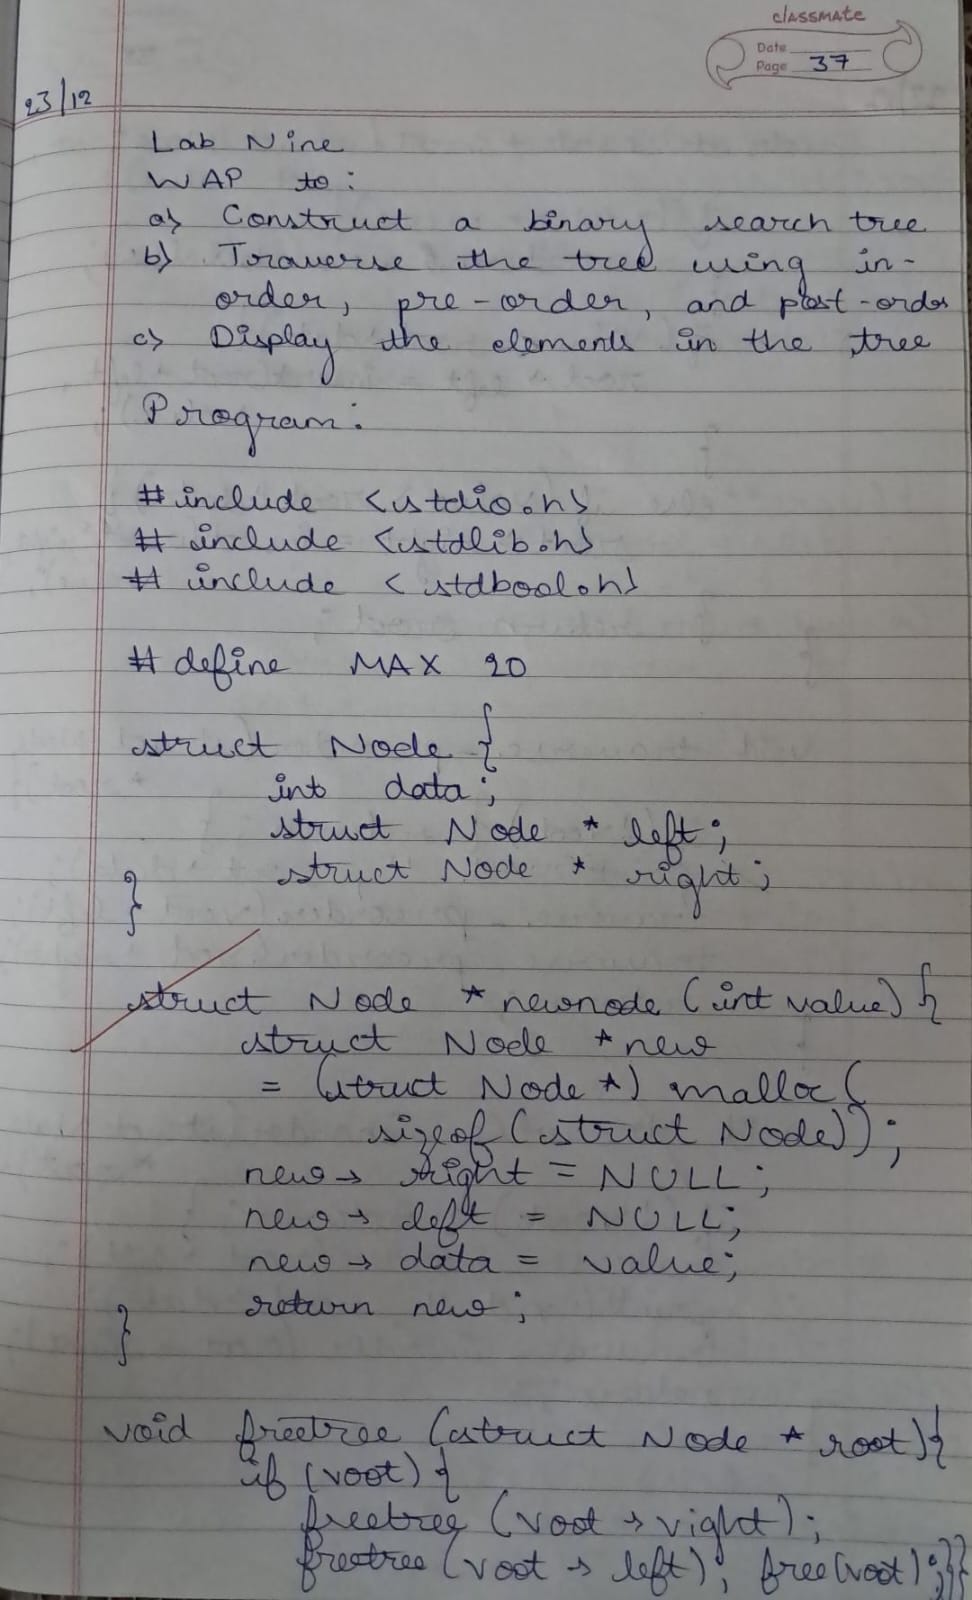 classmate
Date
Page 37
23/12
Lab Nine
WAP to:
a) Construct a binary search tree
b) Traverse the tree using in-
order, pre-order, and post-order
c) Display the elements in the tree
Program:
#include <stdio.h>
# include <stdlib.h>
# include <stdbool.h>
# define MAX 20
struct Node {
int data;
struct Node * left;
struct Node * right;
}
struct Node *newnode (int value) {
struct Node *new
= (struct Node *) malloc (
sizeof (struct Node));
new → right = NULL;
new → left = NULL;
new → data = value;
return new;
}
void freetree (struct Node * root) {
if (root) {
freetree (root → right);
freetree (root → left); free(root);}}